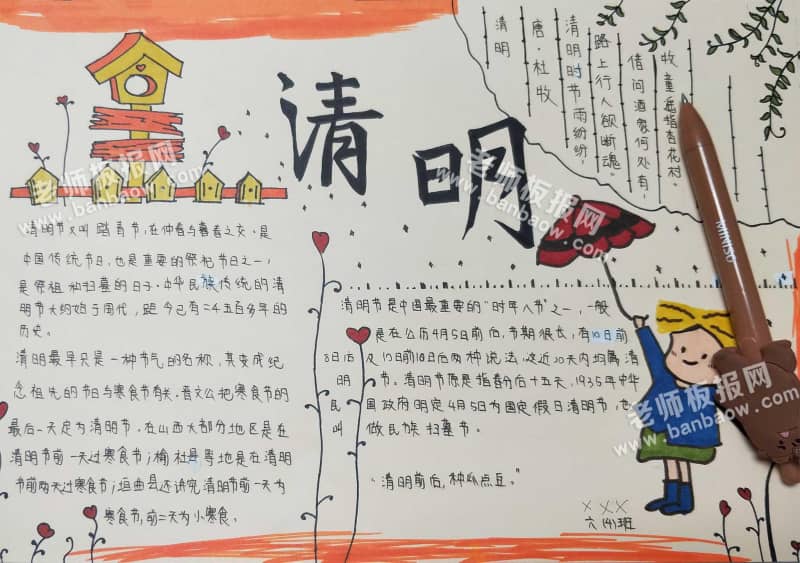 清明
清明
唐·杜牧
清明时节雨纷纷，
路上行人欲断魂。
借问酒家何处有，
牧童遥指杏花村。
清明节又叫踏青节，在仲春与暮春之交，是
中国传统节日，也是重要的祭祀节日之一，
是祭祖和扫墓的日子。中华民族传统的清
明节大约始于周代，距今已有二千五百多年的
历史。
清明最早只是一种节气的名称，其变成纪
念祖先的节日与寒食节有关。晋文公把寒食节的
最后一天定为清明节。在山西大部分地区是在
清明节前一天过寒食节；榆社县等地是在清明
节前两天过寒食节；垣曲县还讲究清明节前一天为
寒食节，前二天为小寒食。
清明节是中国最重要的"时年八节"之一，一般
是在公历4月5日前后，节期很长，有10日前
8日后及10日前10日后两种说法，这近20天内均属清
明节。清明节原是指春分后十五天，1935年中华
民国政府明定4月5日为国定假日清明节，也
叫做民族扫墓节。
"清明前后，种瓜点豆。"
XXX
六(4)班
MINISO
老师板报网
www.banbaow.com
老师板报网
www.banbaow.com
老师板报网
www.banbaow.com
老师板报网
www.banbaow.com